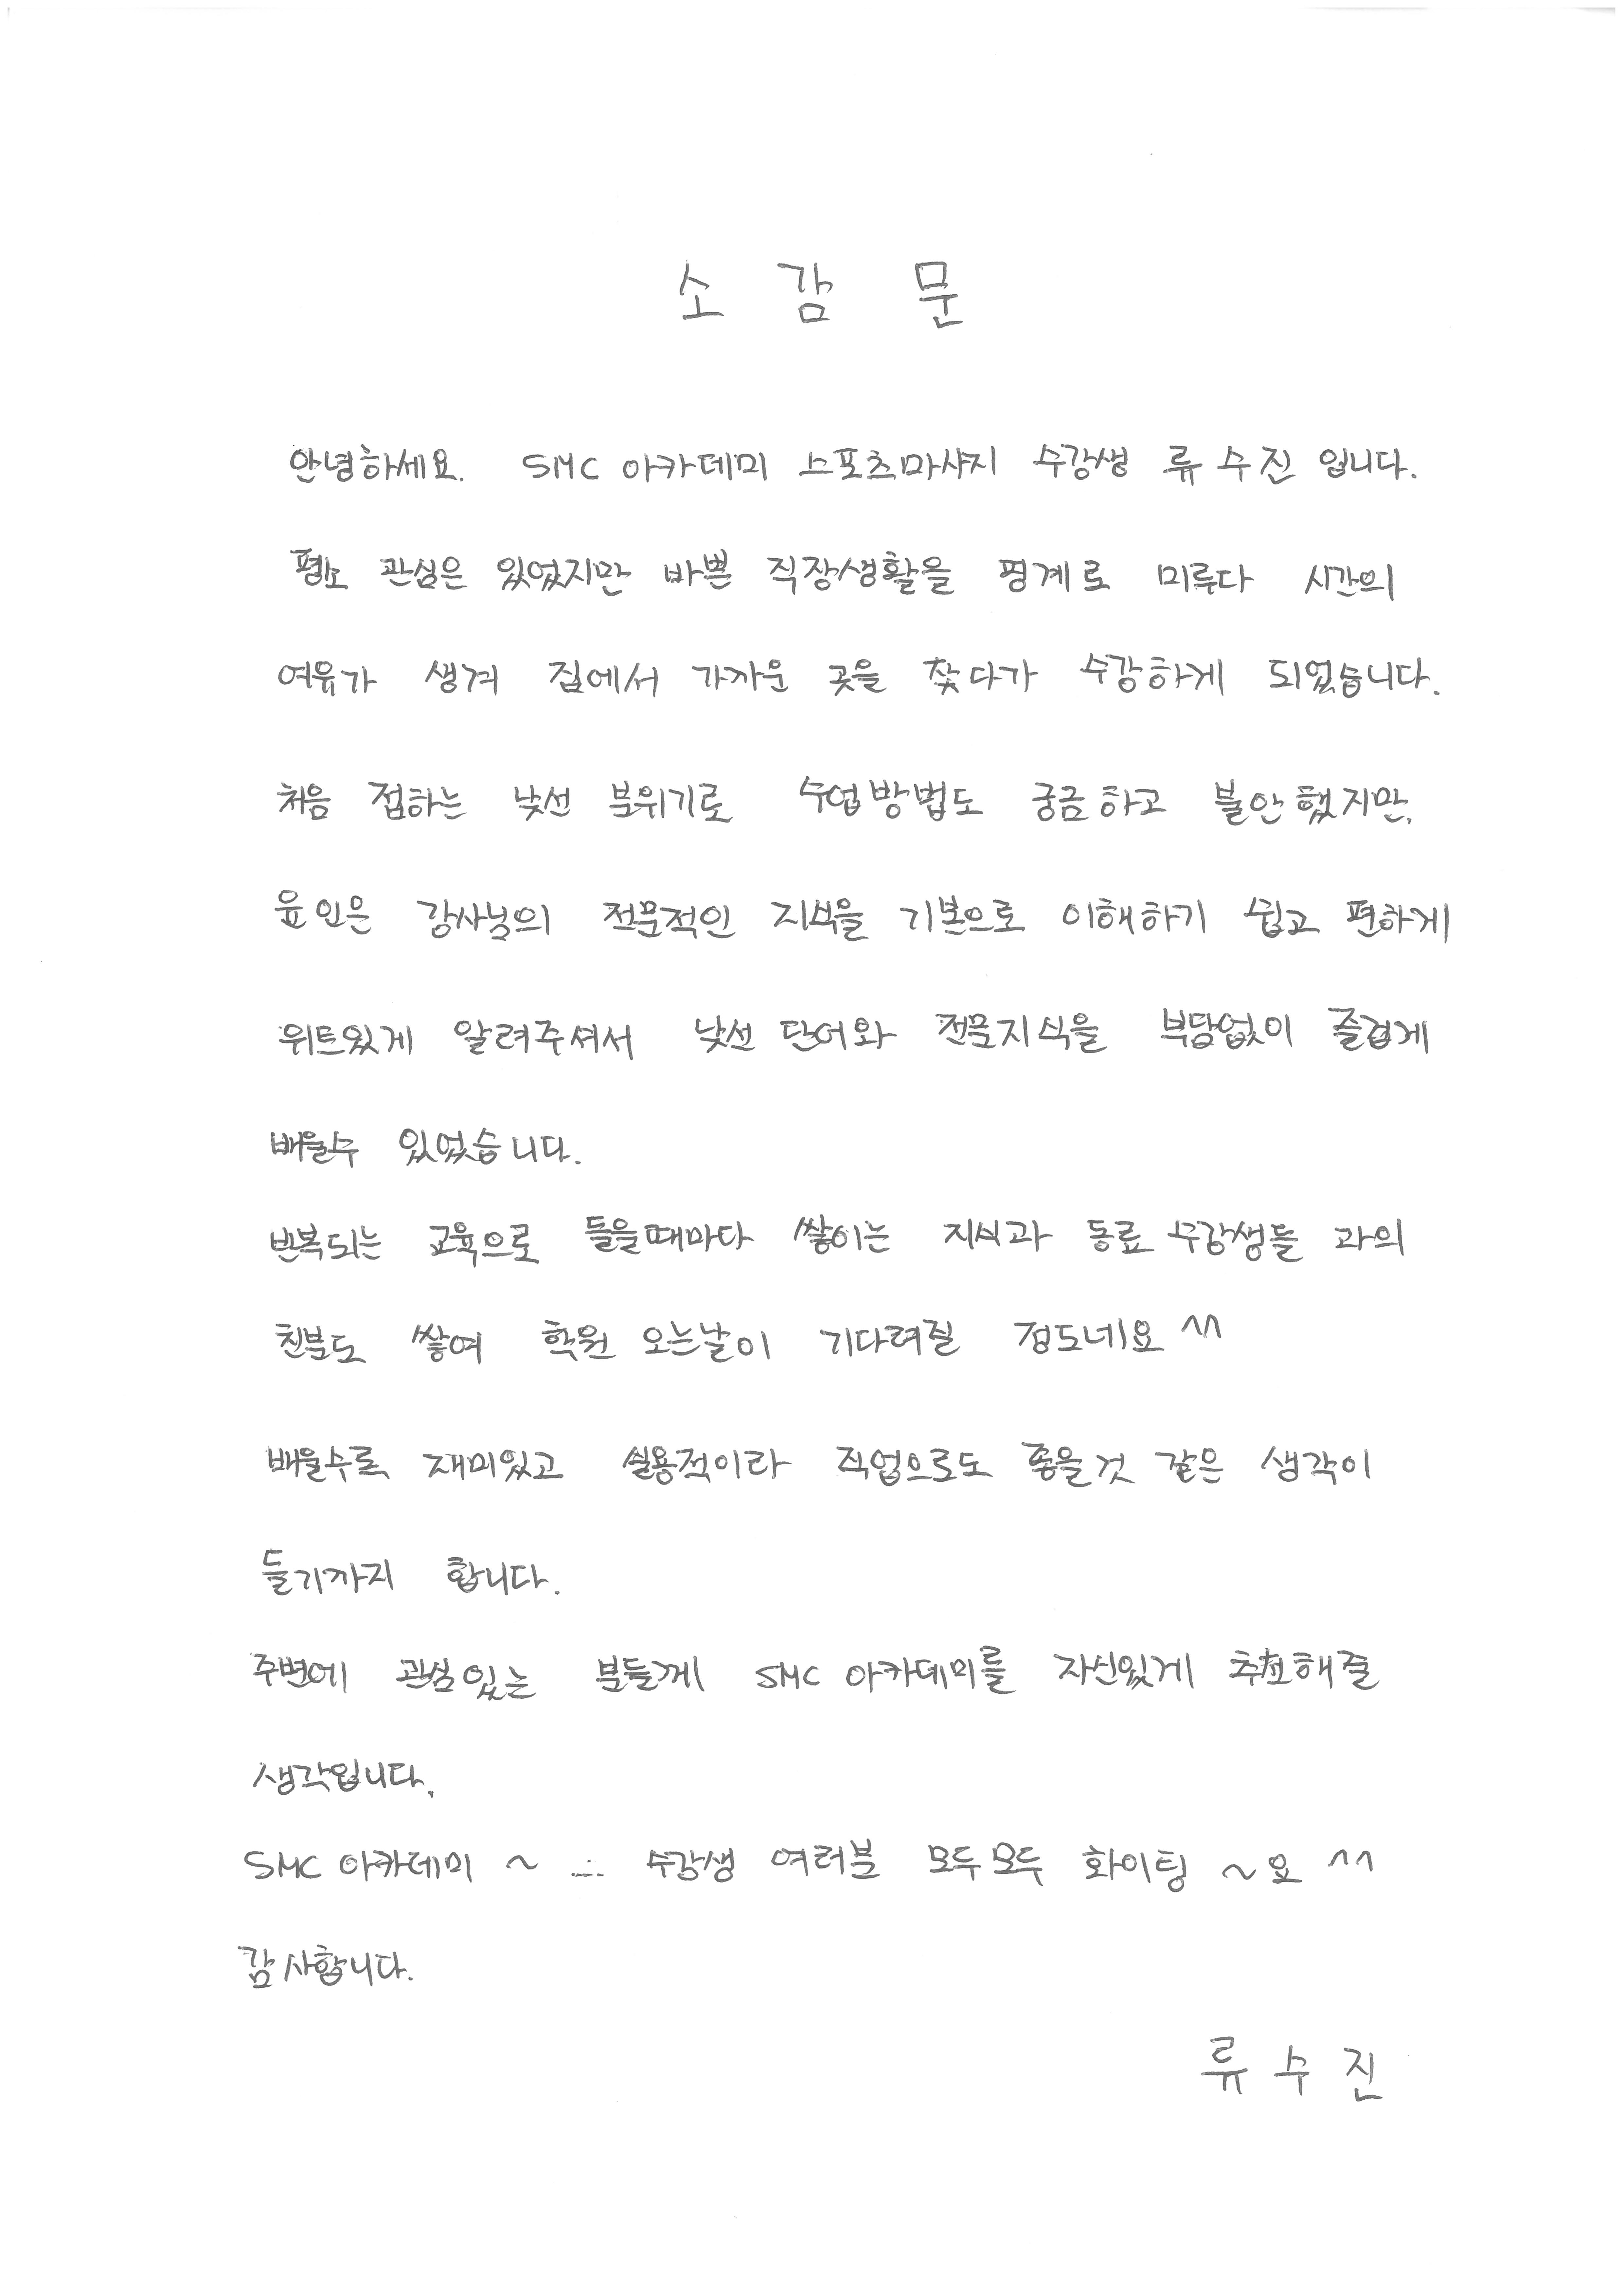 소 감 문
안녕하세요. SMC 아카데미 스포츠마사지 수강생 류 수 진 입니다.
평소 관심은 있었지만 바쁜 직장생활을 핑계로 미루다 시간의
여유가 생겨 집에서 가까운 곳을 찾다가 수강하게 되었습니다.
처음 접하는 낯선 분위기로 수업방법도 궁금하고 불안했지만,
윤인은 강사님의 전문적인 지식을 기본으로 이해하기 쉽고 편하게
위트있게 알려주셔서 낯선 단어와 전문지식을 부담없이 즐겁게
배울수 있었습니다.
반복되는 교육으로 들을때마다 쌓이는 지식과 동료 수강생들 과의
친분도 쌓여 학원 오는날이 기다려질 정도네요 ^^
배울수록 재미있고 실용적이라 직업으로도 좋을것 같은 생각이
들기까지 합니다.
주변에 관심있는 분들께 SMC 아카데미를 자신있게 추천해줄
생각입니다.
SMC 아카데미 ~ ... 수강생 여러분 모두모두 화이팅 ~ 요 ^^
감사합니다.
류 수 진